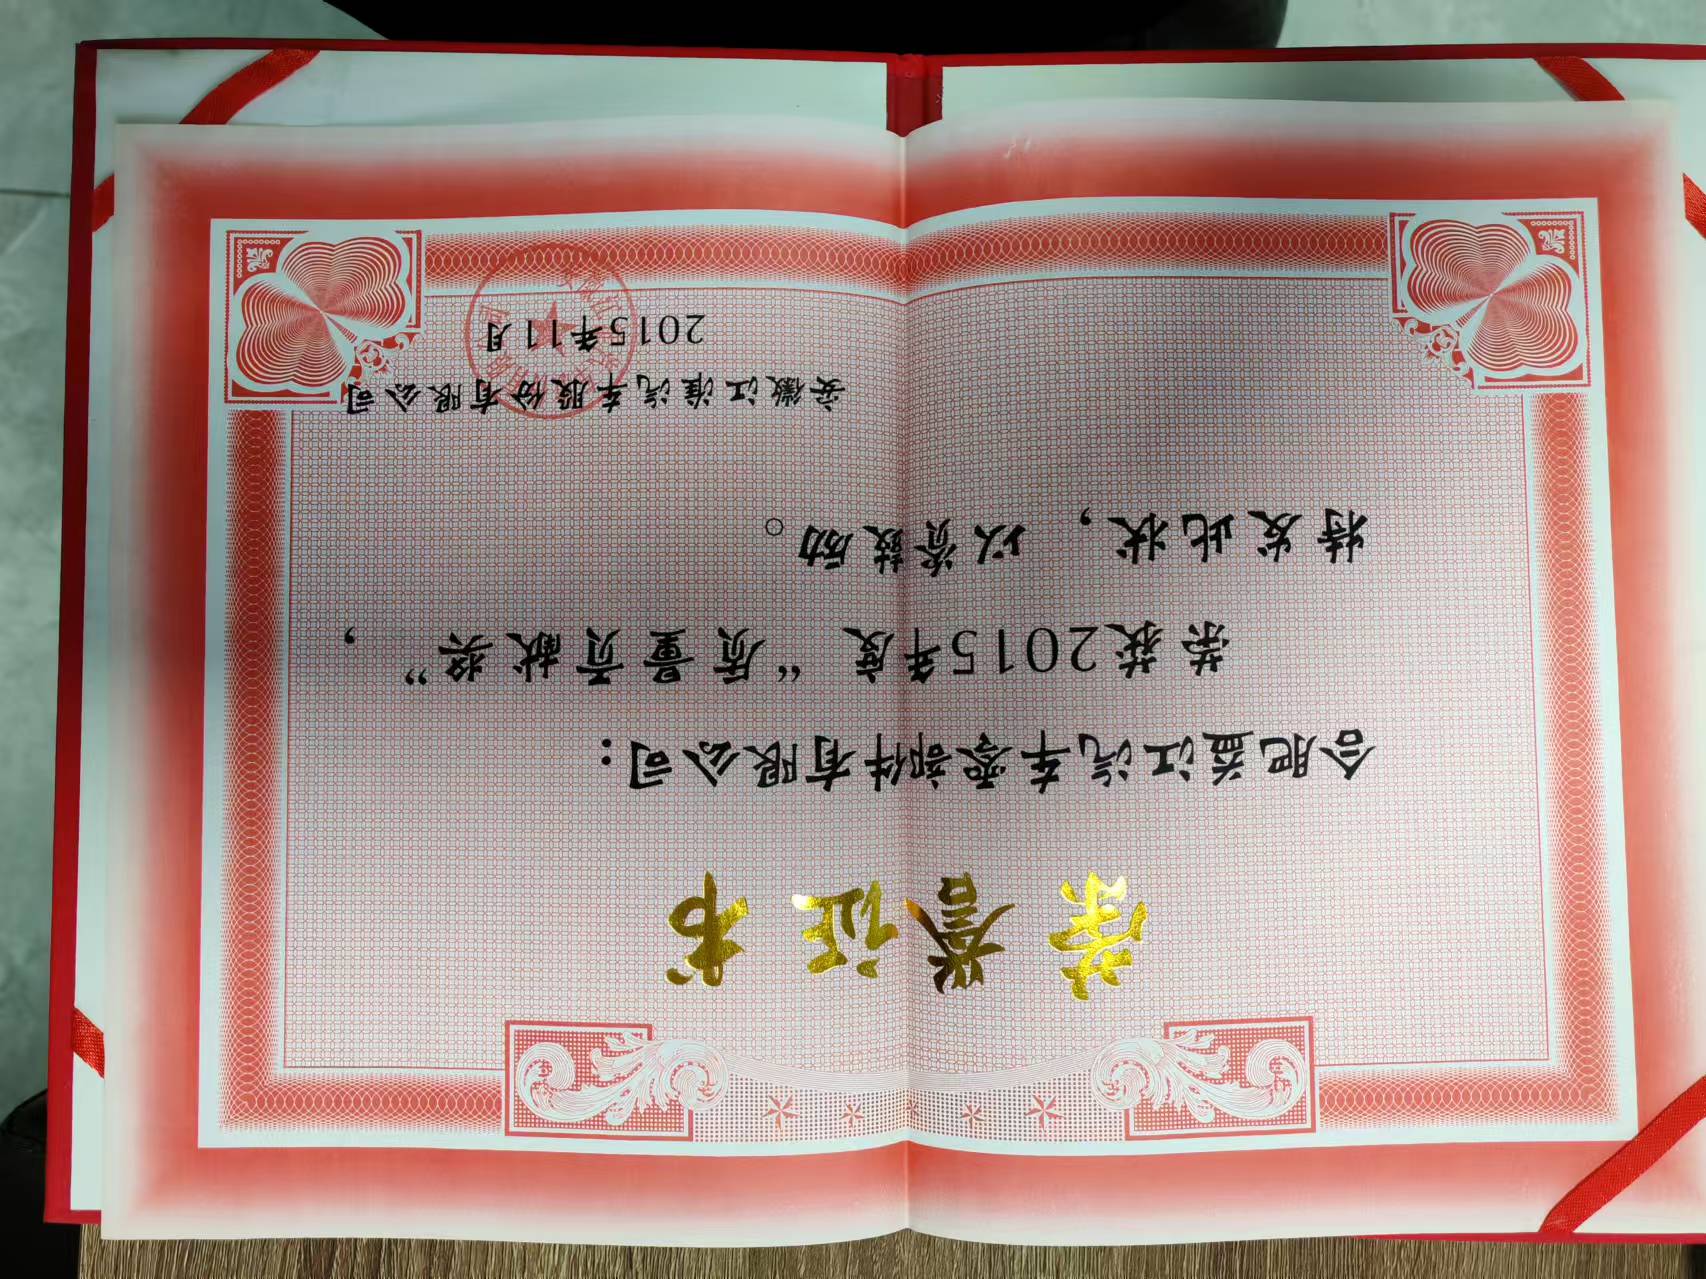 荣誉证书
合肥益江汽车零部件有限公司：
荣获2015年度“质量贡献奖”，
特发此状，以资鼓励。
安徽江淮汽车股份有限公司
2015年11月